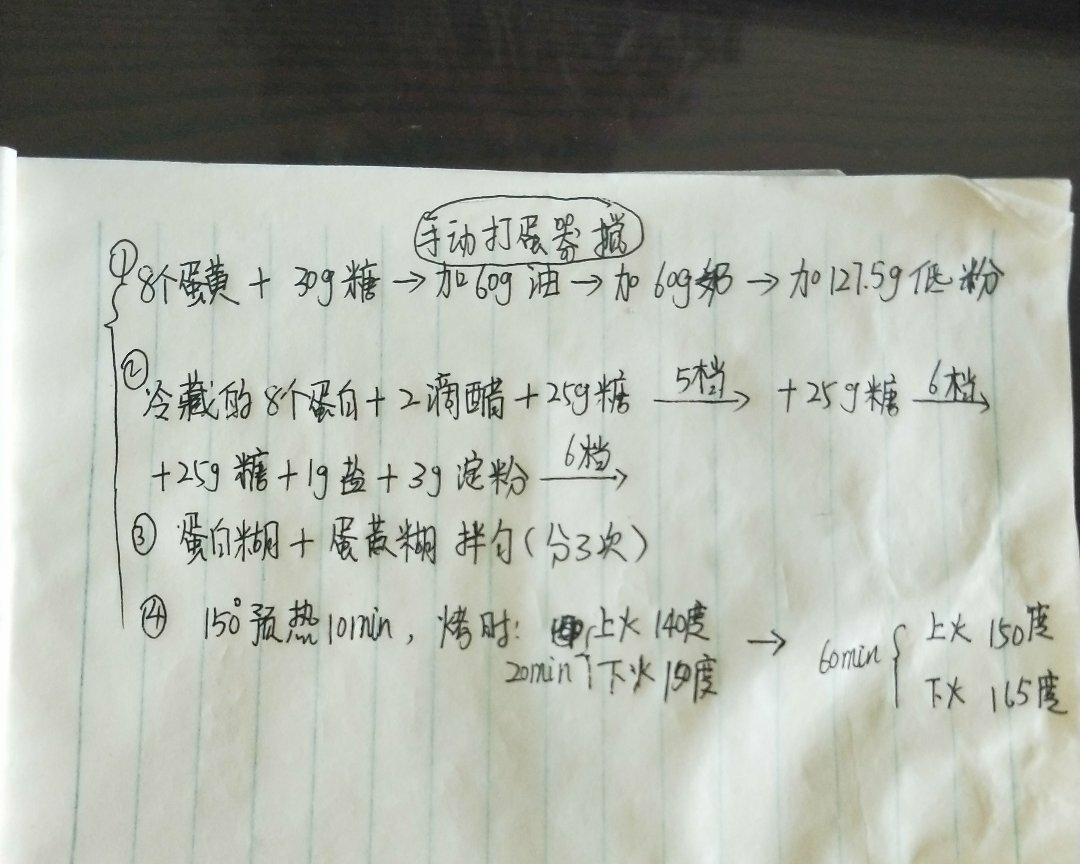 手动打蛋器搅
① 8个蛋黄 + 30g糖 → 加60g油 → 加60g奶 → 加127.5g低粉
② 冷藏的8个蛋白 + 2滴醋 + 25g糖 5档→ + 25g糖 6档→
+25g糖 + 1g盐 + 3g淀粉 6档→
③ 蛋白糊 + 蛋黄糊 拌匀(分3次)
④ 150°预热10min, 烤时: 20min { 上火 140度 → 60min { 上火 150度
下火 150度 下火 165度